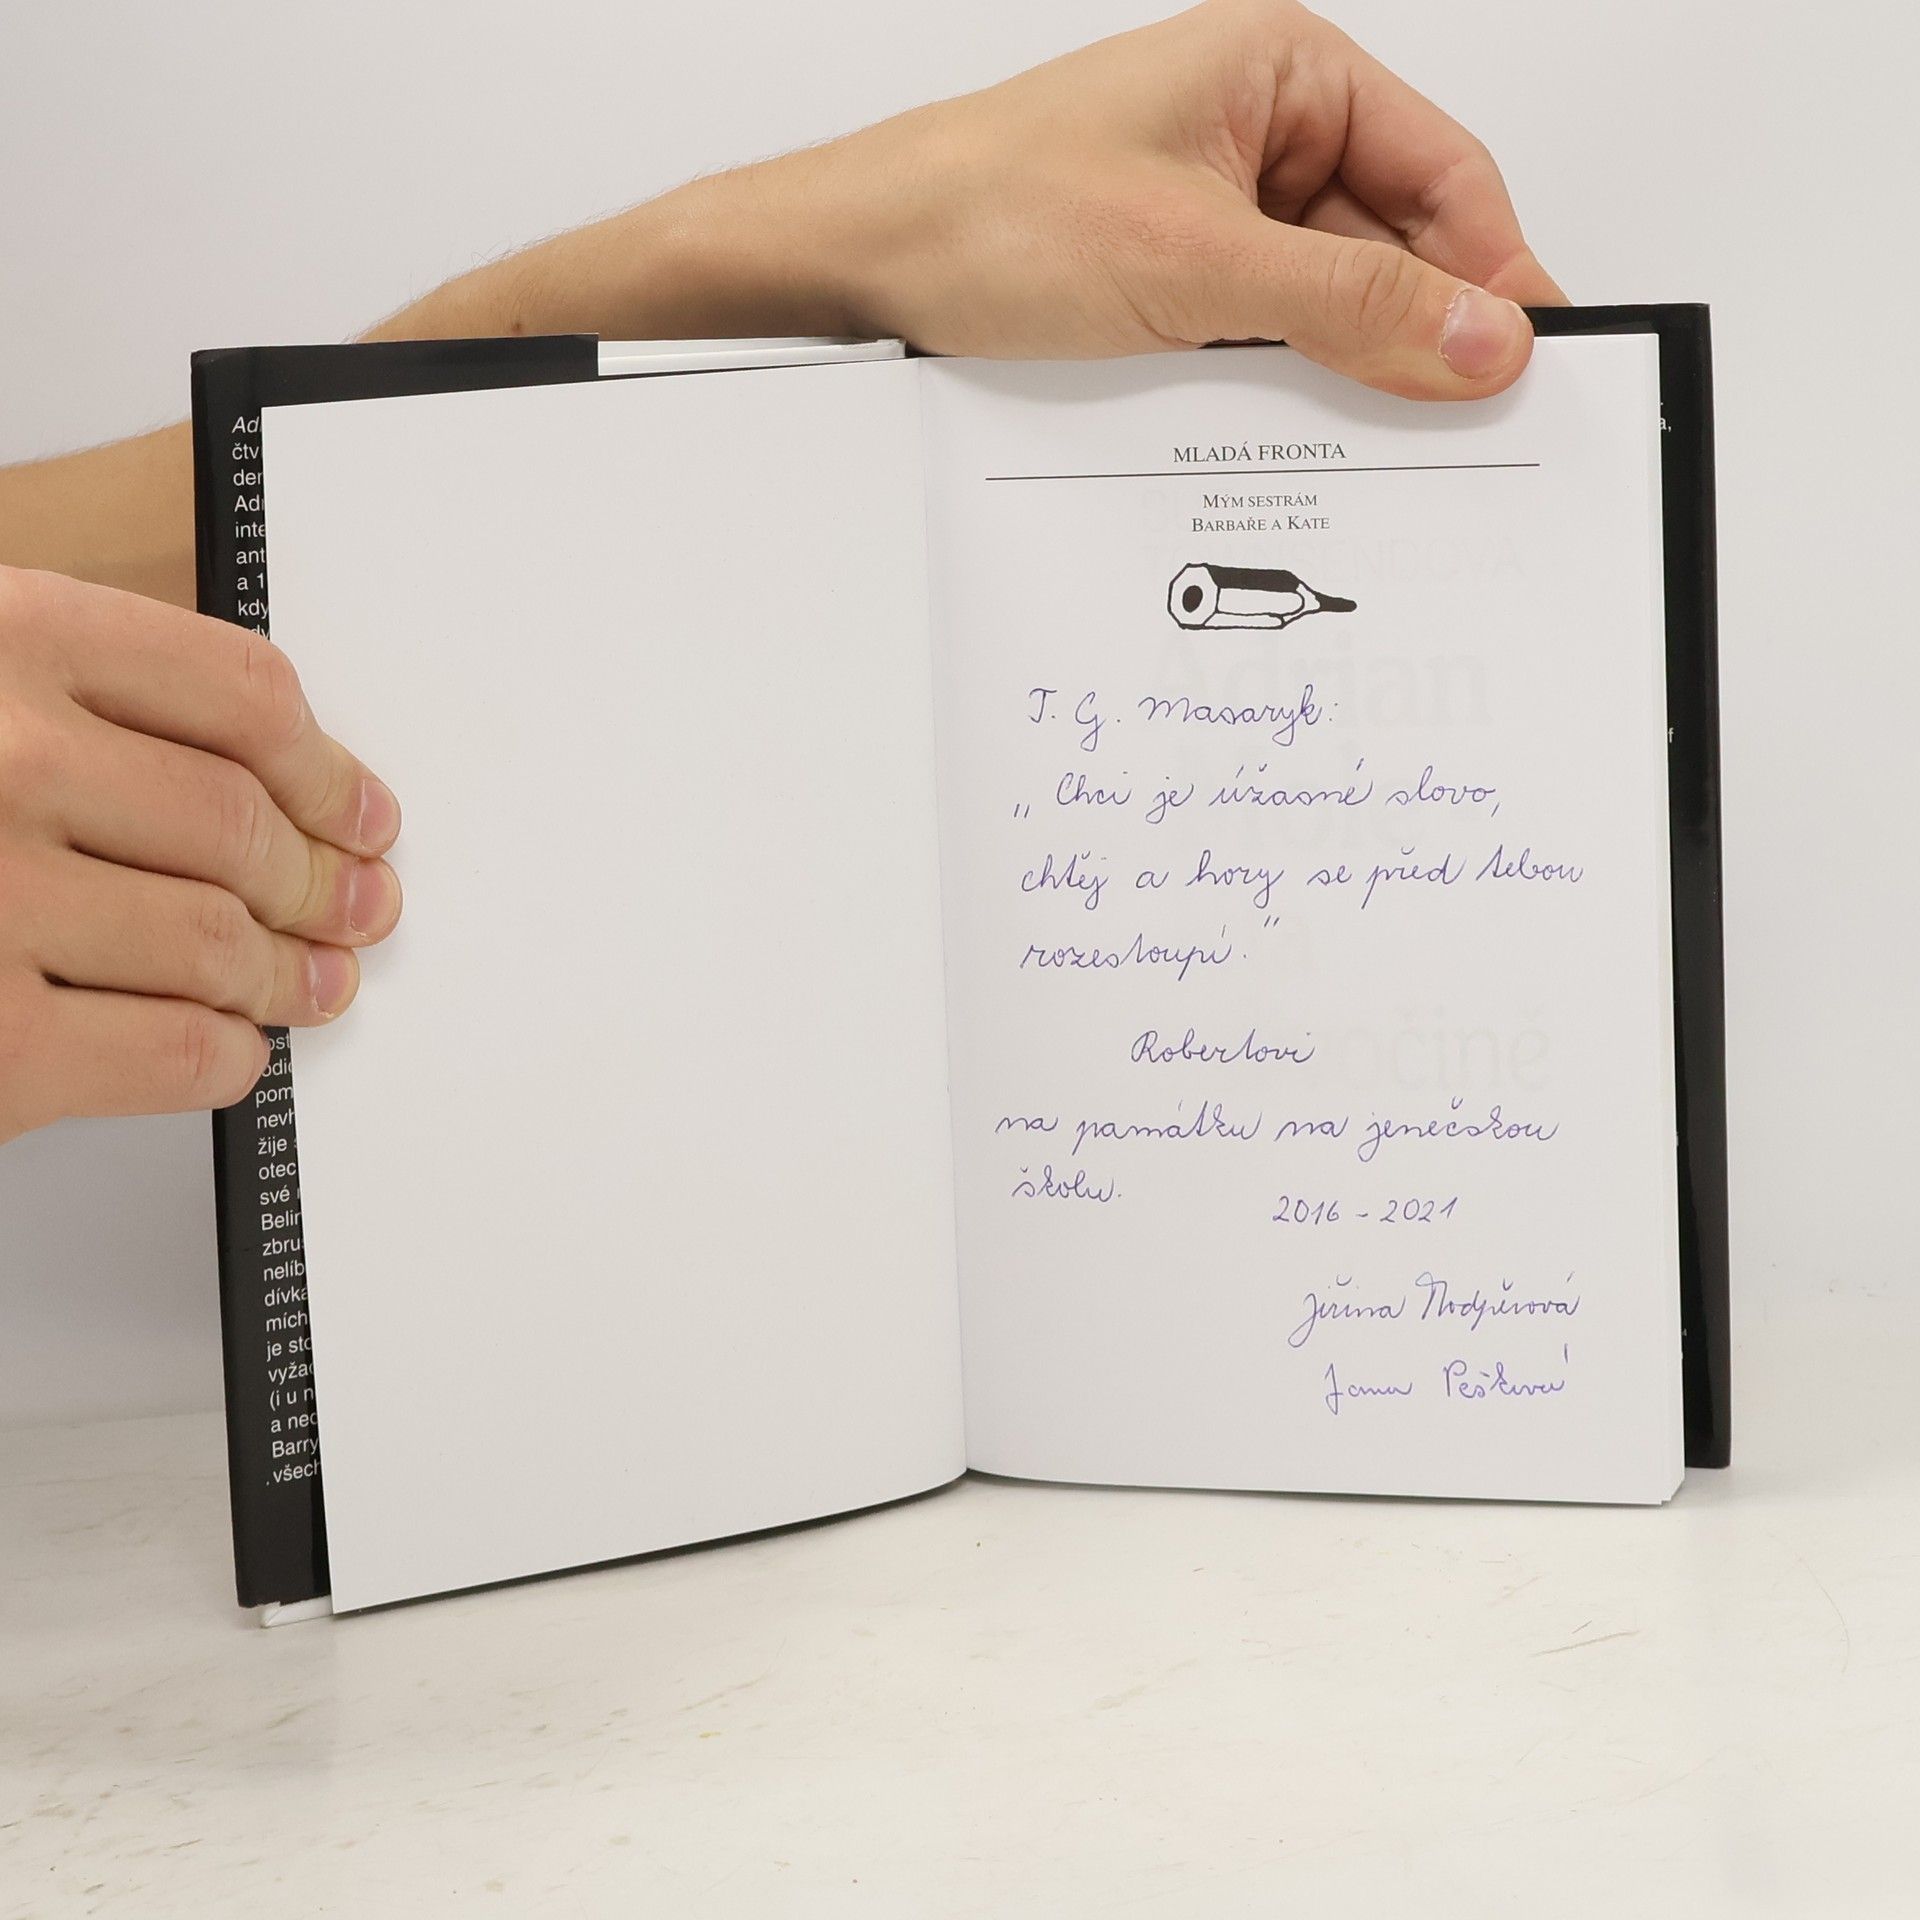 Ad
čtv
der
Adr
inte
ant
a 1
kdy
ost
odic
pom
nevh
žije
otec
své
Belin
zbru
nelíb
dívka
mích
je sto
vyžad
(i u n
a ned
Barry
všech
MLADÁ FRONTA
MÝM SESTRÁM
BARBAŘE A KATE
T. G. Masaryk:
„Chci je úžasné slovo,
chtěj a hory se před tebou
rozestoupí."
Robertovi
na památku na jenečskou
školu.
2016 - 2021
Jiřina Podpěrová
Jana Pešková